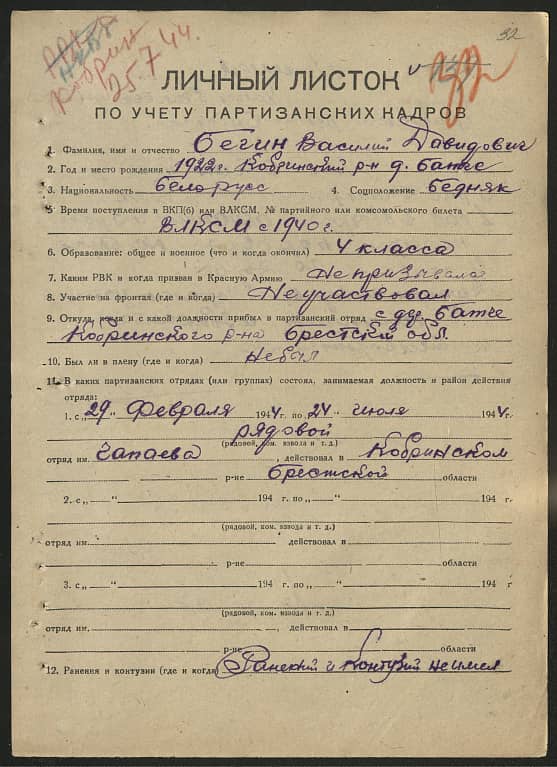 32
Кобрин
25.7.44.
ЛИЧНЫЙ ЛИСТОК
ПО УЧЕТУ ПАРТИЗАНСКИХ КАДРОВ
1. Фамилия, имя и отчество Бегин Василий Давидович
2. Год и место рождения 1922 г. Кобринский р-н д. Батче
3. Национальность белорусс 4. Соцположение бедняк
5 Время поступления в ВКП(б) или ВЛКСМ, № партийного или комсомольского билета
ВЛКСМ с 1940 г.
6. Образование: общее и военное (что и когда окончил) 4 класса
7. Каким РВК и когда призван в Красную Армию Не призывался
8. Участие на фронтах (где и когда) Не участвовал
9. Откуда, когда и с какой должности прибыл в партизанский отряд с дер. Батче
Кобринского р-на Брестской обл
10. Был ли в плену (где и когда) небыл
11. В каких партизанских отрядах (или группах) состоял, занимаемая должность и район действия
отряда:
1. с „29„ Февраля 1944 г. по „24„ июля 1944 г.
рядовой
(рядовой, ком. взвода и т. д.)
отряд им. Чапаева, действовал в Кобринском
р-не Брестской области
2. с „ “ 194 г. по „ “ 194 г.
(рядовой, ком. взвода и т. д.)
отряд им. действовал в
р-не области
3. с „ “ 194 г. по „ “ 194 г
(рядовой, ком. взвода и т. д.)
отряд им. действовал в
р-не области
12. Ранения и контузии (где и когда) Ранений и Контузий не имел